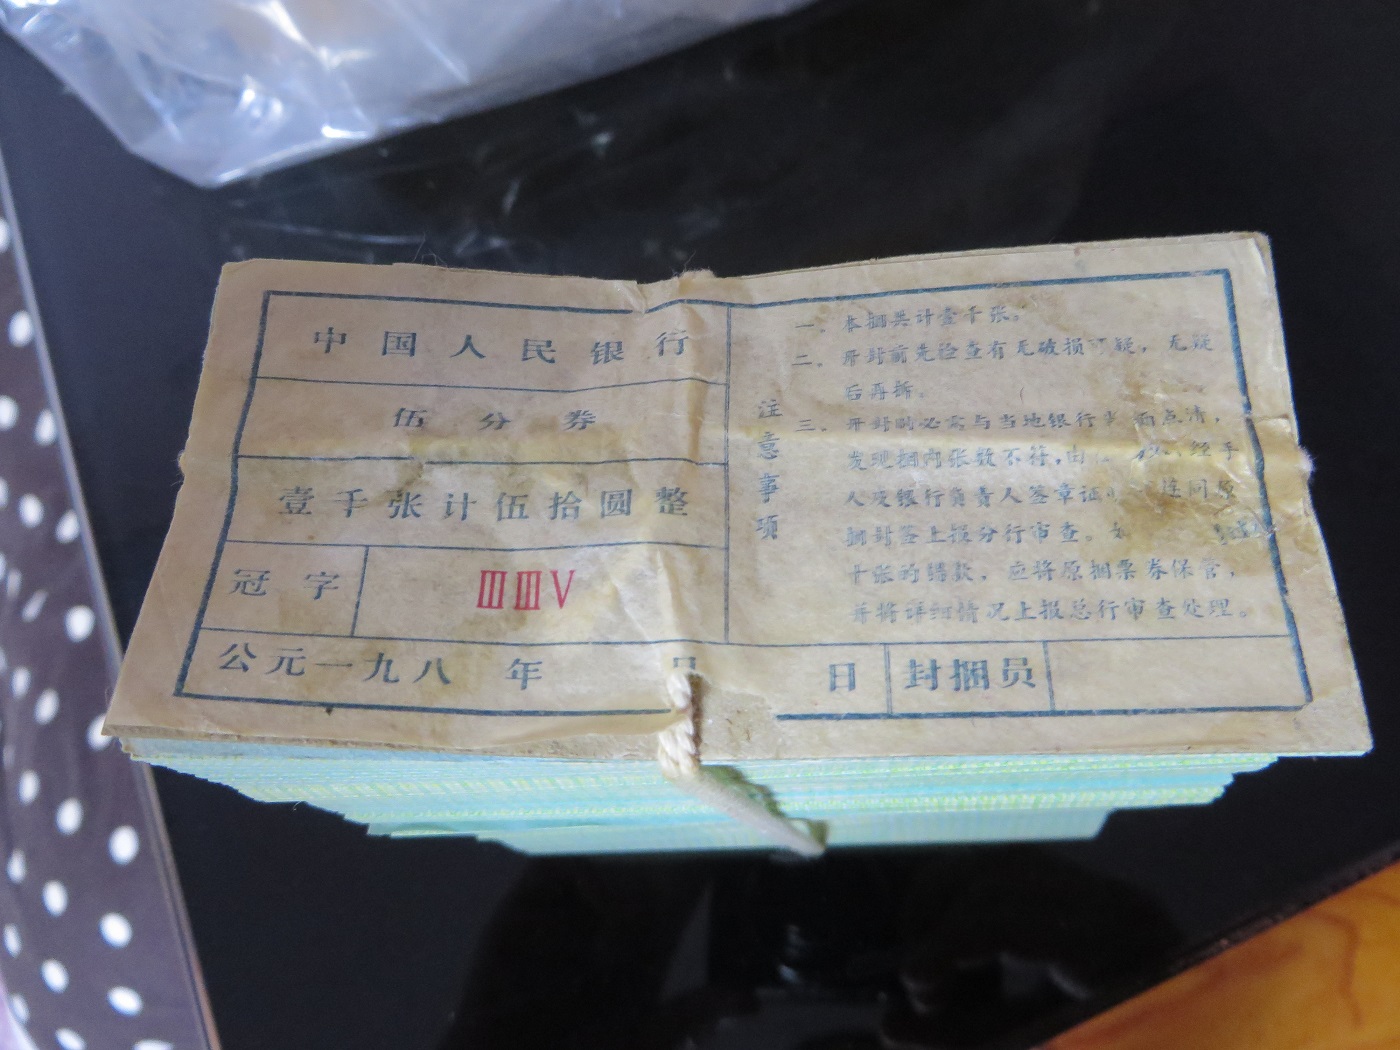 中国人民银行
伍分券
壹千张计伍拾圆整
冠字
ⅢⅢⅤ
注意事项
一、本捆共计壹千张。
二、开封前先检查有无破损可疑，无疑
后再拆。
三、开封时必需与当地银行当面点清，
发现捆内张数不符，由 经手
人及银行负责人签章证 连同原
捆封签上报分行审查。
十张的错款，应将原捆票券保管，
并将详细情况上报总行审查处理。
公元一九八 年 月 日 封捆员